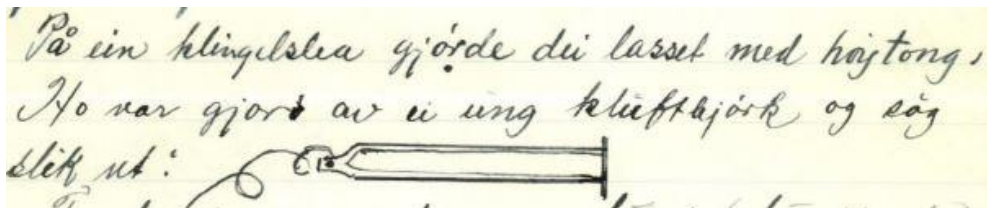 På ein klingelslea gjórde dei lasset med høytong,
Ho var gjord av ei ung kluftbjórk og såg
slik ut: